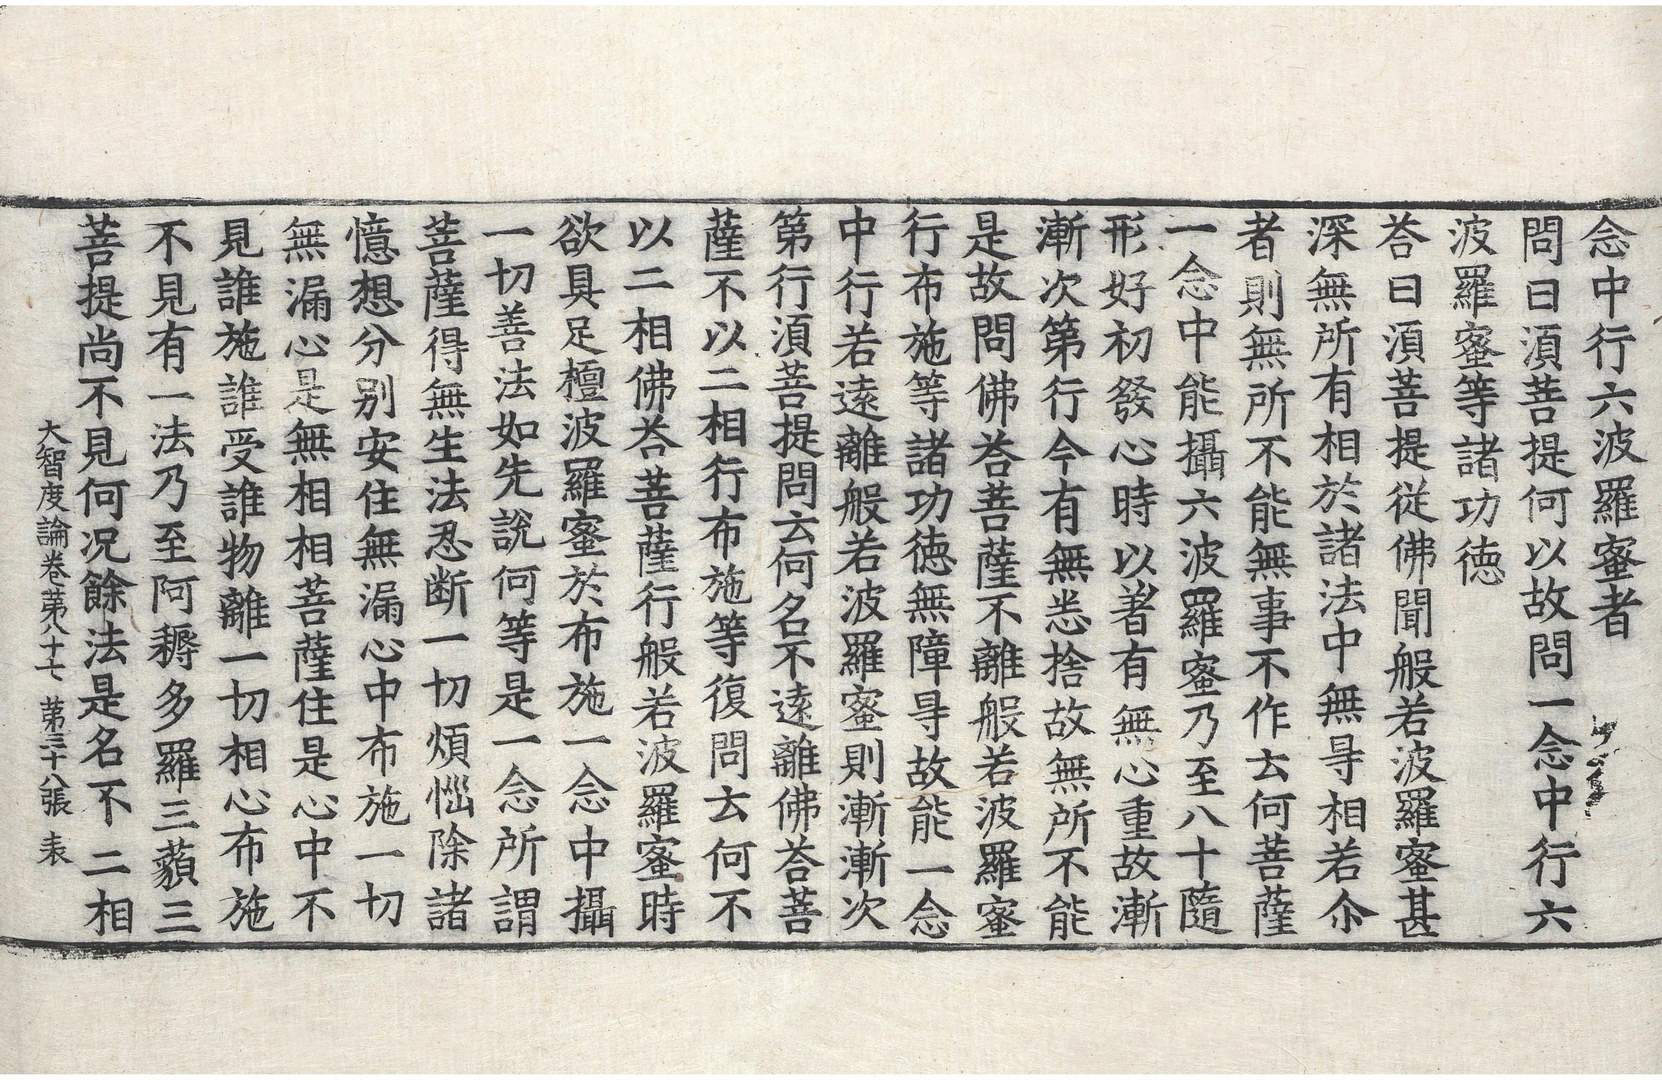 念中行六波羅蜜者
問曰湏菩提何以故問一念中行六
波羅蜜等諸功德
荅曰湏菩提從佛聞般若波羅蜜甚
深無所有相於諸法中無㝵相若尒
者則無所不能無事不作云何菩薩
一念中能攝六波羅蜜乃至八十隨
形好初發心時以著有無心重故漸
漸次第行今有無悉捨故無所不能
是故問佛荅菩薩不離般若波羅蜜
行布施等諸功德無障㝵故能一念
中行若遠離般若波羅蜜則漸漸次
第行湏菩提問云何名不遠離佛荅菩
薩不以二相行布施等復問云何不
以二相佛荅菩薩行般若波羅蜜時
欲具足檀波羅蜜於布施一念中攝
一切善法如先說何等是一念所謂
菩薩得無生法忍断一切煩惱除諸
憶想分別安住無漏心中布施一切
無漏心是無相相菩薩住是心中不
見誰施誰受誰物離一切相心布施
不見有一法乃至阿耨多羅三藐三
菩提尚不見何况餘法是名不二相
大智度論卷第八十七 第三十八張 表